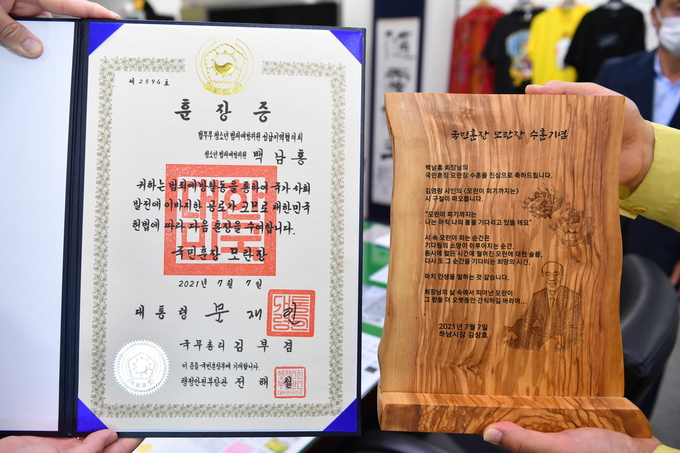 제 2594 호
훈장증
법무부 청소년 범죄예방위원 성남지역협의회
청소년 범죄예방위원 백남홍
귀하는 범죄예방활동을 통하여 국가 사회
발전에 이바지한 공로가 크므로 대한민국
헌법에 따라 다음 훈장을 수여합니다.
국민훈장 모란장
2021년 7월 7일
대통령 문재인
국무총리 김부겸
이 증을 국민훈장부에 기재합니다.
행정안전부장관 전해철
국민훈장 모란장 수훈기념
백남홍 회장님의
국민훈장 모란장 수훈을 진심으로 축하드립니다.
김영랑 시인의 《모란이 피기까지는》
시 구절이 떠오릅니다.
"모란이 피기까지는
나는 아직 나의 봄을 기다리고 있을 테요"
시 속 모란이 피는 순간은
기다림의 소망이 이루어지는 순간,
동시에 짧은 시간에 떨어진 모란에 대한 슬픔,
다시 또 그 순간을 기다리는 희망의 시간.
마치 인생을 말하는 것 같습니다.
회장님의 삶 속에서 피어난 모란이
그 향을 더 오랫동안 간직하길 바라며...
2021년 7월 7일
하남시장 김상호